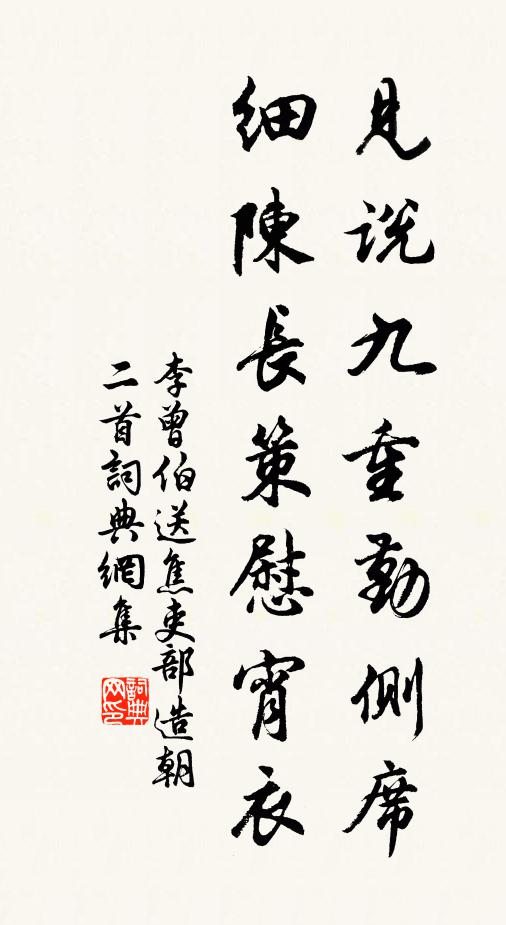 見説九重勤側席
細陳長策慰宵衣
李曾伯送焦吏部造朝
二首詞典網集
詞典網印